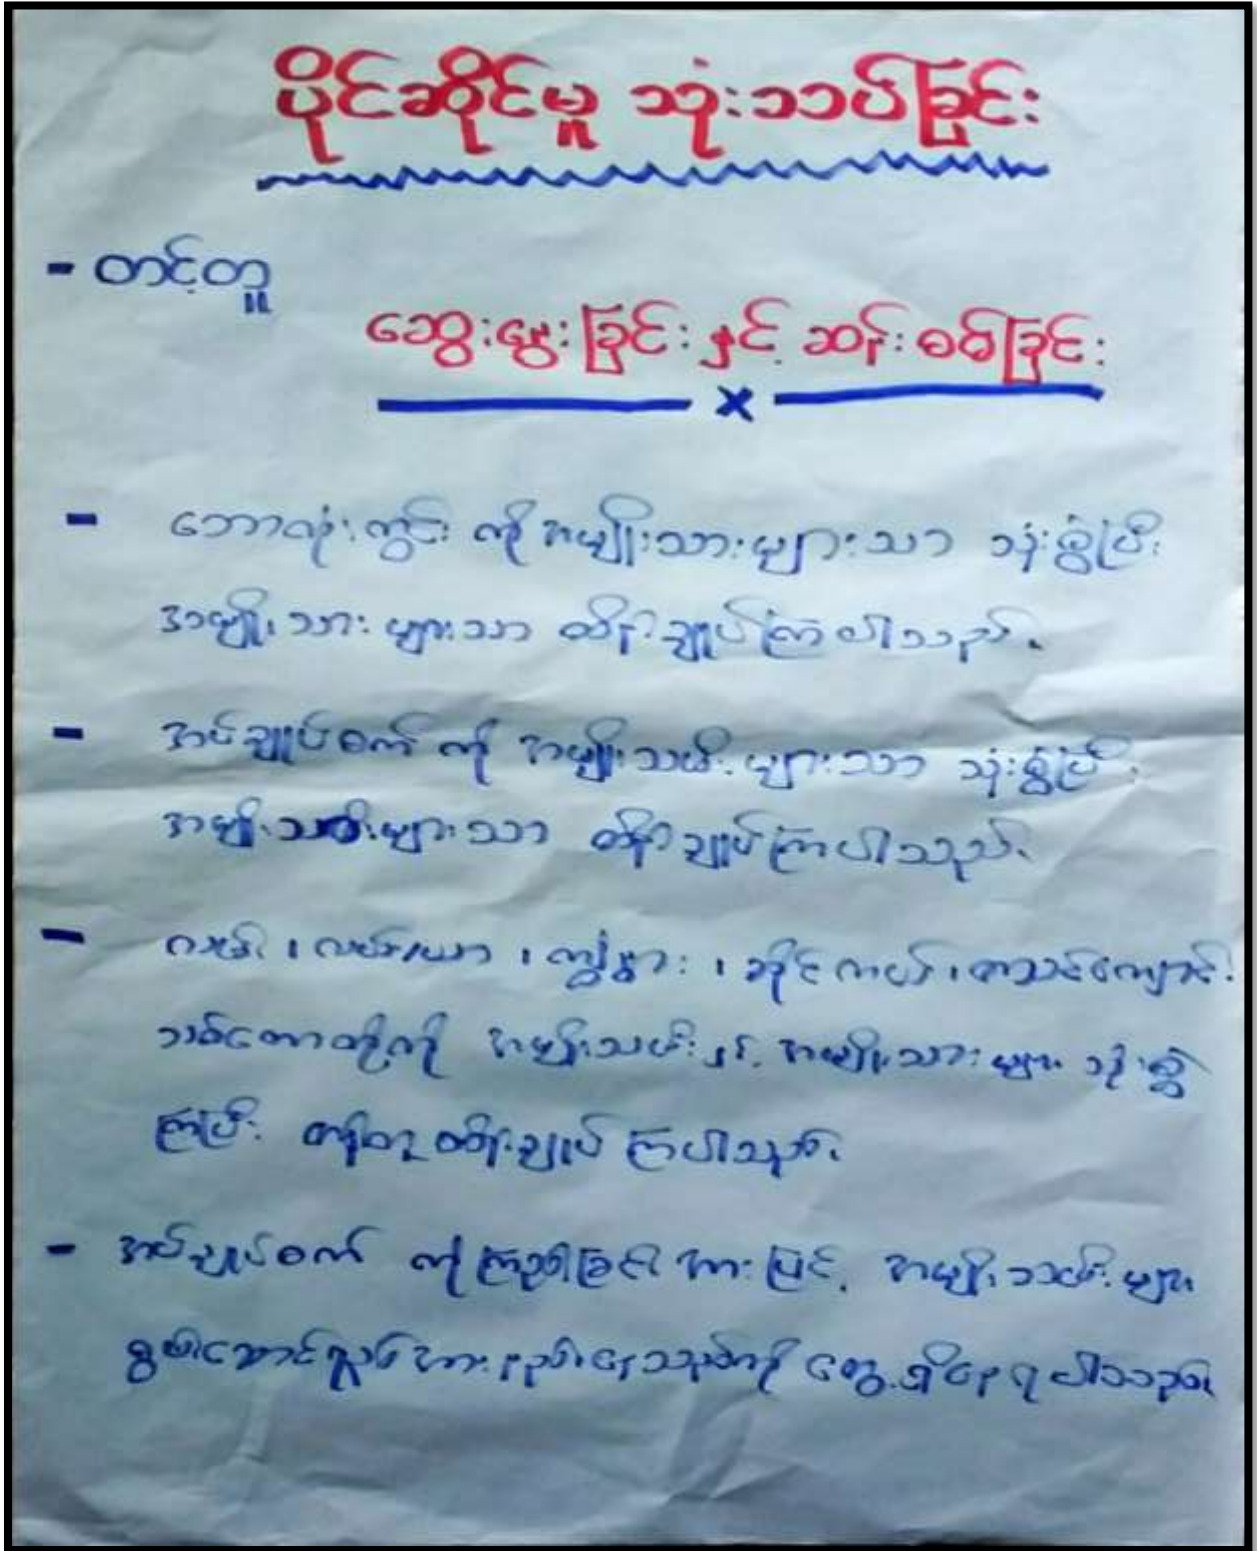 ပိုင်ဆိုင်မှု သုံးသပ်ခြင်း
- တင့်တူ
ဆွေးနွေးခြင်းနှင့် ဆန်းစစ်ခြင်း
x
- ဘောလုံးကွင်း ကို အမျိုးသားများသာ သုံးစွဲပြီး
အမျိုးသားများသာ ထိန်းချုပ်ကြပါသည်။
- အပ်ချုပ်စက် ကို အမျိုးသမီးများသာ သုံးစွဲပြီး
အမျိုးသမီးများသာ ထိန်းချုပ်ကြပါသည်။
- လယ်/ယာ ၊ ကျွဲနွား ၊ ဆိုင်ကယ် ၊ စာသင်ကျောင်း
သစ်တောတို့ကို အမျိုးသမီးနှင့် အမျိုးသားများ သုံးစွဲ
ကြပြီး ထိန်းချုပ် ကြပါသည်။
- အပ်ချုပ်စက် ကို ကြည့်ခြင်း အားဖြင့် အမျိုးသမီးများ
စွမ်းဆောင်ရွက်အားနည်းနေသည်ကို တွေ့ရှိနေရပါသည်။